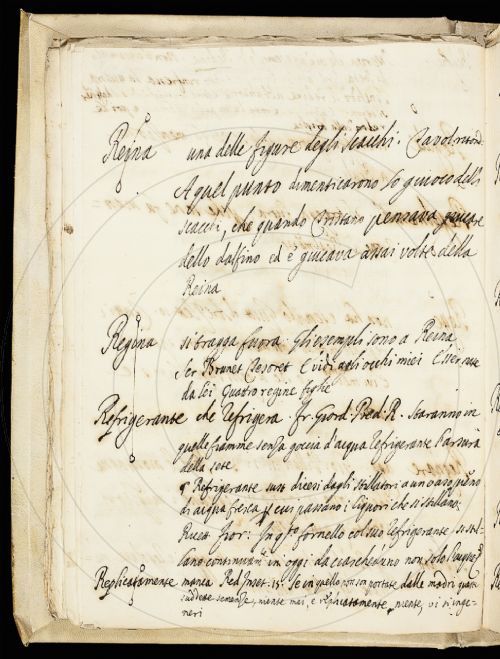 Reina una delle figure degli Scacchi. Tavol. riton.
A quel punto dimenticarono lo giuoco delli
scacchi, che quando Tristano pensava giucare
dello dalfino ed e giucava assai volte della
Reina
Regina si tragga fuora. Gli esempli sono a Reina
Ser Brunet Tesoret E vidi agli occhi miei Esser nate
da lei Quatro regine figlie
Refrigerante che refrigera. Fr. Giord. Pred. R. Staranno in
quelle fiamme senza goccia d'acqua refrigerante l'arsura
della sete
¶ Refrigerante sust. dicesi dagli stillatori a un vaso pieno
di acqua fresca p cui passano i liquori che si stillano.
Ricett. Fior. In q.to fornello col suo refrigerante si stil-
lano continuam.te in oggi da ciascheduno non solo l'acque
Replicatamente maniera Red. Inset. 15. Se in quello non son portate dalle madri quasi
suddette semenze, niente mai, e replicatamente niente, vi si inge-
neri